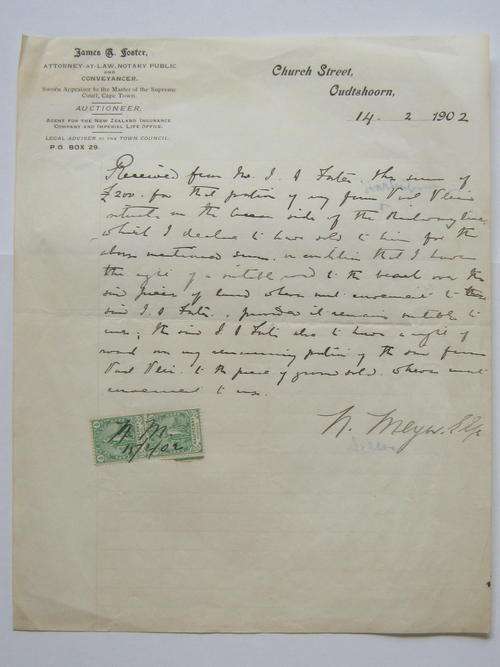 James A. Foster,
ATTORNEY-AT-LAW, NOTARY PUBLIC
AND
CONVEYANCER.
Sworn Appraiser to the Master of the Supreme
Court, Cape Town.
AUCTIONEER.
AGENT FOR THE NEW ZEALAND INSURANCE
COMPANY AND IMPERIAL LIFE OFFICE.
LEGAL ADVISER TO THE TOWN COUNCIL.
P.O. BOX 29.
Church Street,
Oudtshoorn,
14 . 2 1902
Received from Mr. J. A Foster the sum of
£200. for that portion of my farm Vlei
situate on the ocean side of the Railway line,
which I declare to have sold to him for the
above mentioned sum, on condition that I have
the right of a suitable road to the beach over the
said piece of land where most convenient to the
said J. A Foster, provided it remains suitable to
me; the said J A Foster also to have a right of
road over my remaining portion of the said farm
Vlei to the piece of ground sold where most
convenient to me.
N. Meyer
N. M.
15/2/02